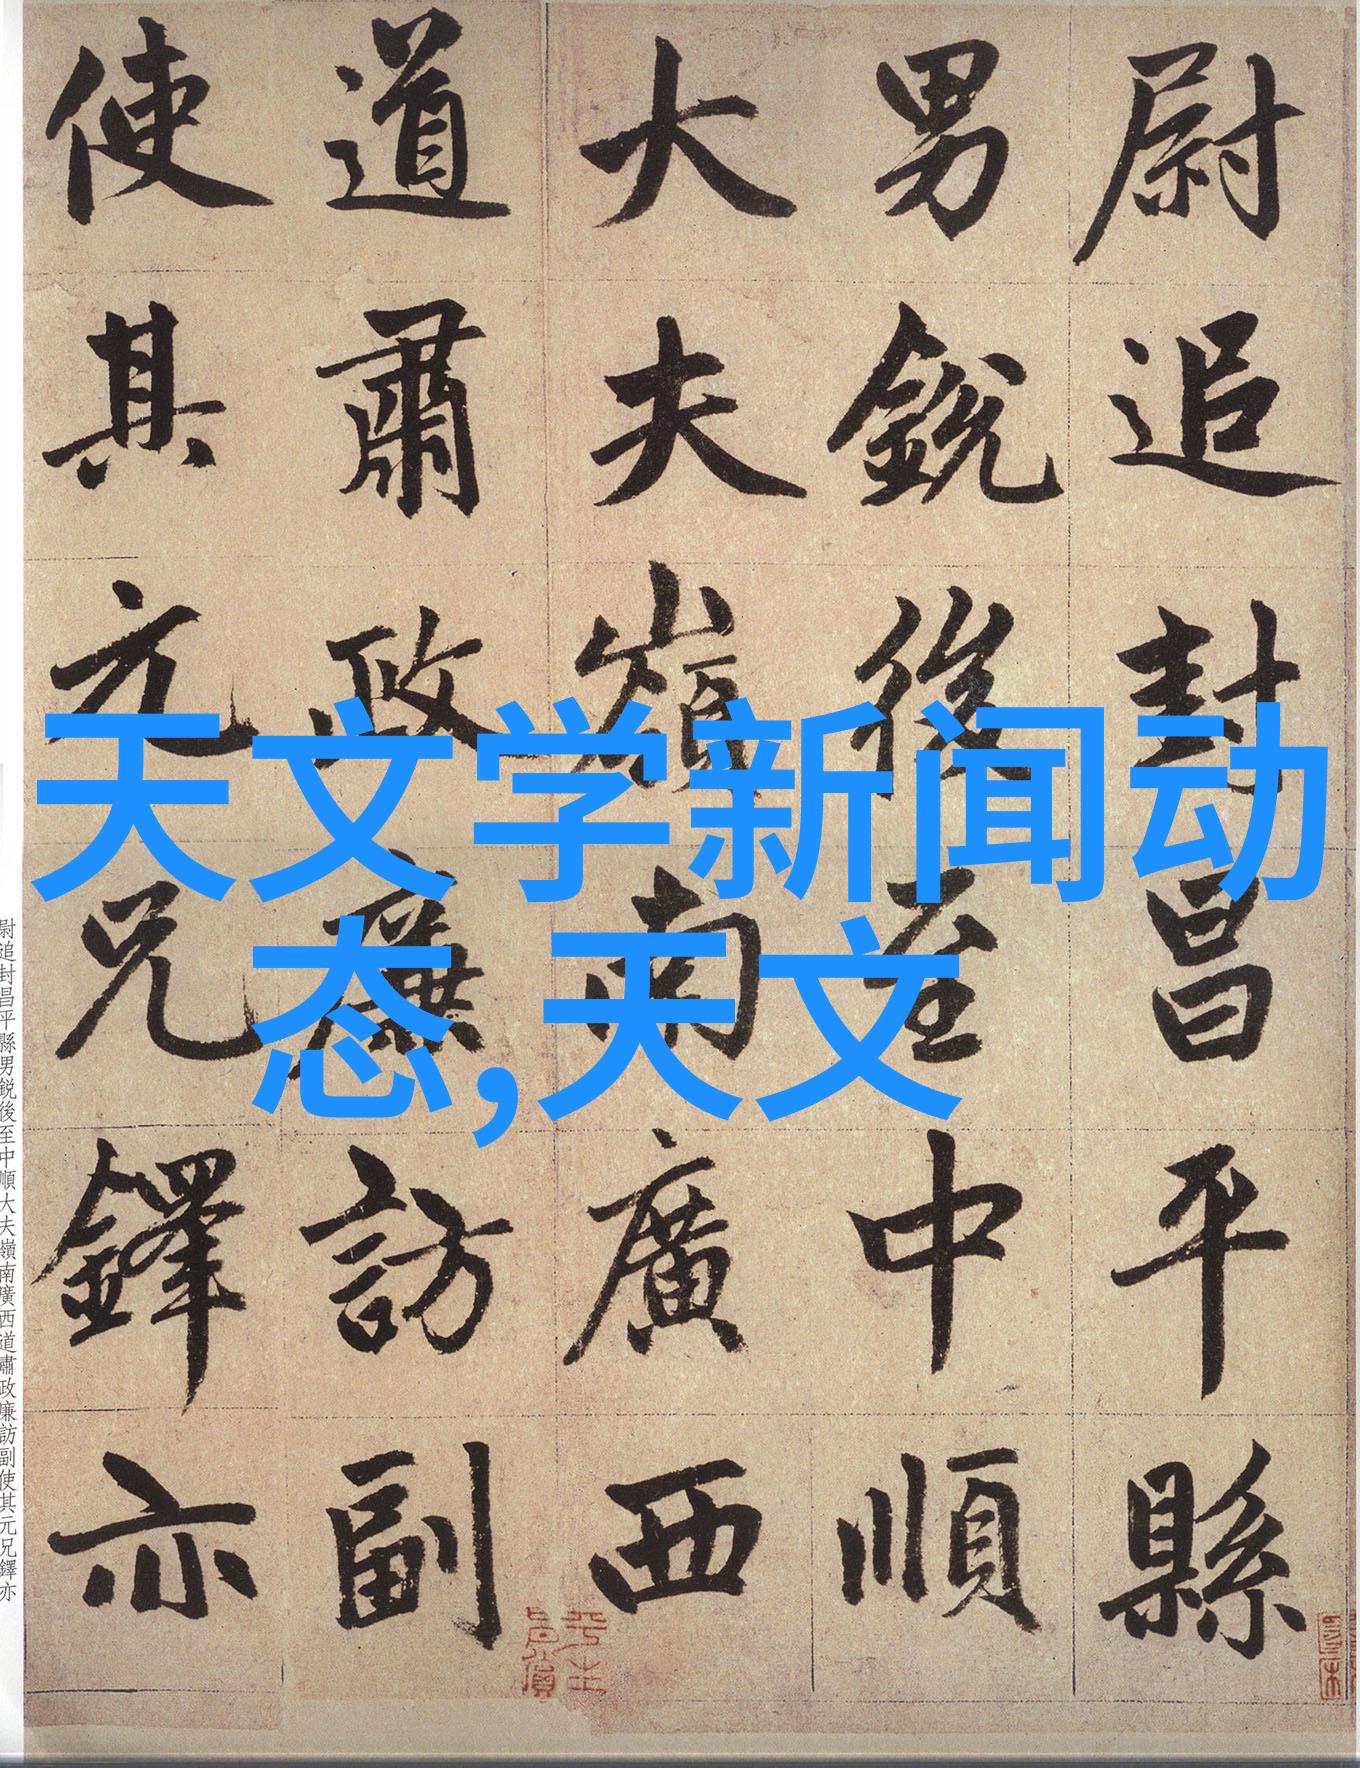 尉追封昌平縣
男銳後至中順
大夫嶺南廣西
道肅政廉訪副
使其元兄鐸亦
天文学新闻动
态,天文
尉追封昌平縣男銳後至中順大夫嶺南廣西道肅政廉訪副使其元兄鐸亦